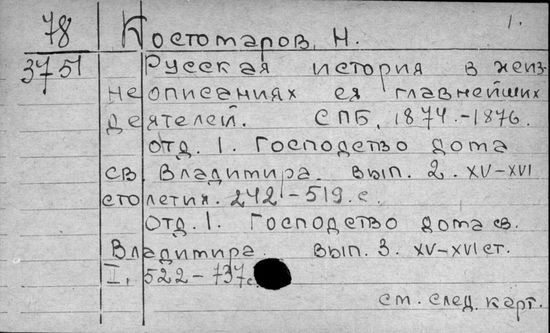 78 Костомаров, Н. 1.
3751 Русская история в жиз-
неописаниях ея главнейших
деятелей. СПБ, 1874.-1876.
отд. 1. Господство дома
св. Владимира. вып. 2. XV-XVI
столетия. 242-519. с.
Отд. 1. Господство дома св.
Владимира. вып. 3. XV-XVI ст.
I, 522-737с
см. след. карт.